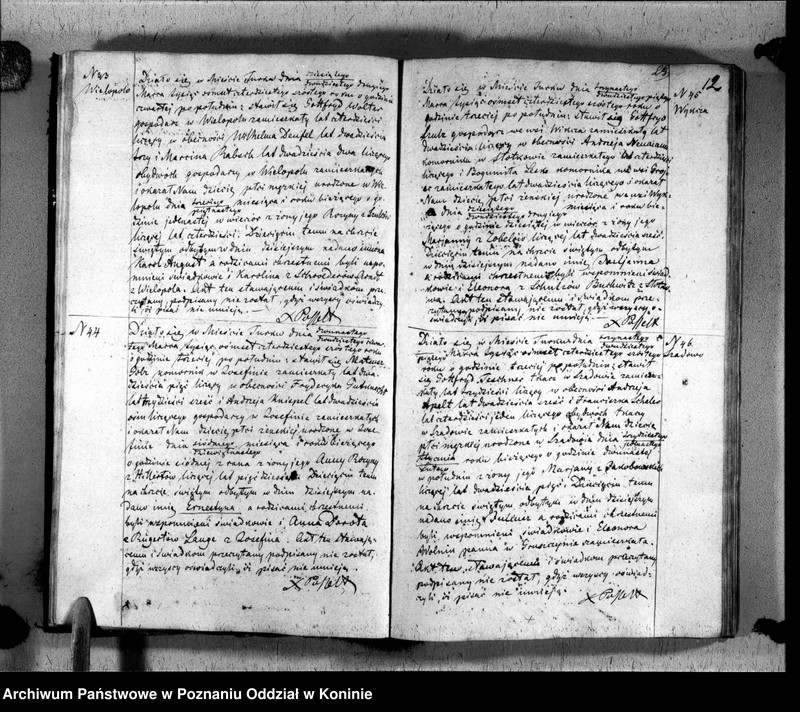 N 43
Wielopole
Działo się, w Mieście Turku dnia dziesiątego
dwudziestego drugiego
Marca tysiąc ośmset czterdziestego szóstego roku o godzinie
czwartej po południu; stawił się Gottfryd Walter
gospodarz w Wielopolu zamieszkały lat czterdzieści
liczący w obecności Wilhelma Deufel lat dwadzieścia
trzy i Marcina Rabech lat dwadzieścia dwa liczącego
obydwóch gospodarzy w Wielopolu zamieszkałych
i okazał Nam dziecię płci męzkiej urodzone w Wie-
lopolu dnia trzeciego
piętnastego miesiąca i roku bieżącego o go-
dzinie jedenastej w wieczór z żony jego Rozyny z
liczącej lat czterdzieści: Dziecięciu temu na chrzcie
świętym odbytym w dniu dzisiejszym nadano imiona
Karol August a rodzicami chrzestnemi byli wspo-
mnieni świadkowie i Karolina z Schroederów
z Wielopola. Akt ten stawającemu i świadkom prze-
czytany, podpisany nie został, gdyż wszyscy oświadczy-
li, iż pisać nie umieją.
X Pusselt
N 44
Działo się w Mieście Turku dnia dwunastego
dwudziestego czwar-
tego Marca tysiąc ośmset czterdziestego szóstego roku
o godzinie trzeciej po południu; stawił się Mateusz
Golz komornik w Józefinie zamieszkały lat dwa-
dzieścia pięć liczący w obecności Fryderyka
lat trzydzieści sześć i Andrzeja Kniepel lat dwadzieścia
ośm liczącego gospodarzy w Józefinie zamieszkałych
i okazał Nam dziecię płci żeńskiej urodzone w Józe-
finie dnia siódmego
dziewiętnastego miesiąca i roku bieżącego
o godzinie siódmej z rana z żony jego Anny Rozyny
z Hillertów liczącej lat pięćdziesiąt. Dziecięciu temu
na chrzcie świętym odbytym w dniu dzisiejszym na-
dano imię Ernestyna, a rodzicami chrzestnemi
byli wspomnieni świadkowie i Anna Dorota
z Rügertów Lange z Józefina. Akt ten stawają-
cemu i świadkom przeczytany podpisany nie został,
gdyż wszyscy oświadczyli, iż pisać nie umieją.
X Pusselt
23.
12
N 45
Wykcza
Działo się, w Mieście Turku dnia trzynastego
dwudziestego piątego
Marca tysiąc ośmset czterdziestego szóstego roku o
godzinie trzeciej po południu; stawił się Gottfryd
Szulz gospodarz we wsi Wikcza zamieszkały lat
dwadzieścia liczący w obecności Andrzeja Neumann
komornika w Słotkowie zamieszkałego lat czterdzieści
liczącego i Bogumiła Leske komornika we wsi
zamieszkałego lat dwadzieścia liczącego i okazał
Nam dziecię płci żeńskiej urodzone we wsi Wyk-
cza dnia dziesiątego
dwudziestego drugiego miesiąca i roku bie-
żącego o godzinie dziesiątej w wieczór z żony jego
Maryanny z Lobelów liczącej lat dwadzieścia sześć.
Dziecięciu temu na chrzcie świętym odbytym
w dniu dzisiejszym nadano imię Juljanna
a rodzicami chrzestnemi byli wspomnieni świad-
kowie i Eleonora z Schulców Buchwitz z
Akt ten stawającemu i świadkom prze-
czytany podpisany nie został, gdyż wszyscy o-
świadczyli, iż pisać nie umieją.
X Pusselt
N 46.
Szadowo
Działo się w Mieście Turku dnia trzynastego
dwudziestego
piątego Marca tysiąc ośmset czterdziestego szóstego
roku o godzinie trzeciej po południu; stawił
się Gottfryd Teschner tkacz w Szadowie zamiesz-
kały lat trzydzieści liczący w obecności Andrzeja
Apelt lat dwadzieścia sześć i Franciszka Scholes
lat czterdzieści jeden liczącego obydwóch tkaczy
w Szadowie zamieszkałych i okazał Nam dziecię
płci męzkiej urodzone w Szadowie dnia trzydziestego
jedenastego
Stycznia
Lutego roku bieżącego o godzinie dwunastej
w południe z żony jego Marjanny z Jakobowskich
liczącej lat dwadzieścia pięć. Dziecięciu temu
na chrzcie świętym odbytym w dniu dzisiejszym
nadano imię Juliusz a rodzicami chrzestnemi
byli, wspomnieni świadkowie i Eleonora
Wolnin panna w Gruszczynie zamieszkała.
Akt ten stawającemu i świadkom przeczytany
podpisany nie został, gdyż wszyscy oświad-
czyli, iż pisać nie umieją.
X Pusselt
Archiwum Państwowe w Poznaniu Oddział w Koninie